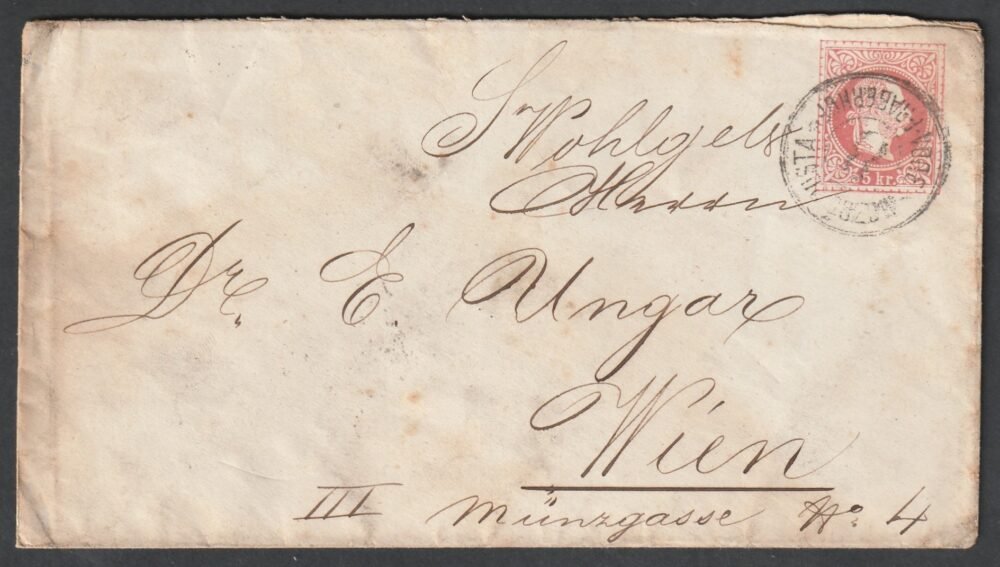 Sr Wohlgeb
Herrn
Dr. E. Ungar
Wien
III Münzgasse No 4
5 kr.